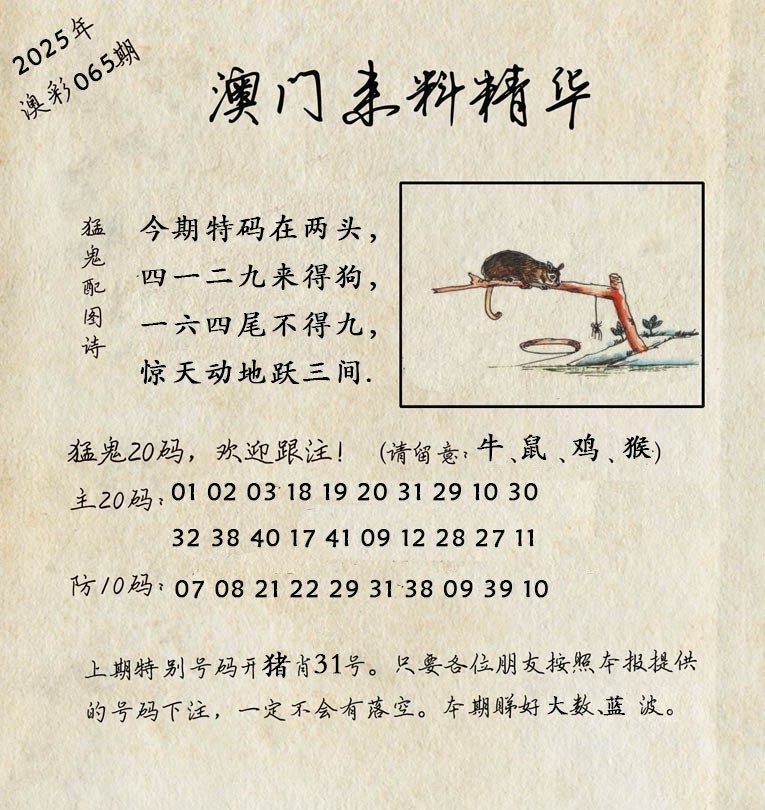 2025年
澳彩065期
澳门来料精华
猛鬼配图诗
今期特码在两头，
四一二九来得狗，
一六四尾不得九，
惊天动地跃三间.
猛鬼20码，欢迎跟注！（请留意：牛、鼠、鸡、猴）
主20码：01 02 03 18 19 20 31 29 10 30
32 38 40 17 41 09 12 28 27 11
防10码：07 08 21 22 29 31 38 09 39 10
上期特别号码开猪肖31号。只要各位朋友按照本报提供
的号码下注，一定不会有落空。本期睇好大数、蓝 波。